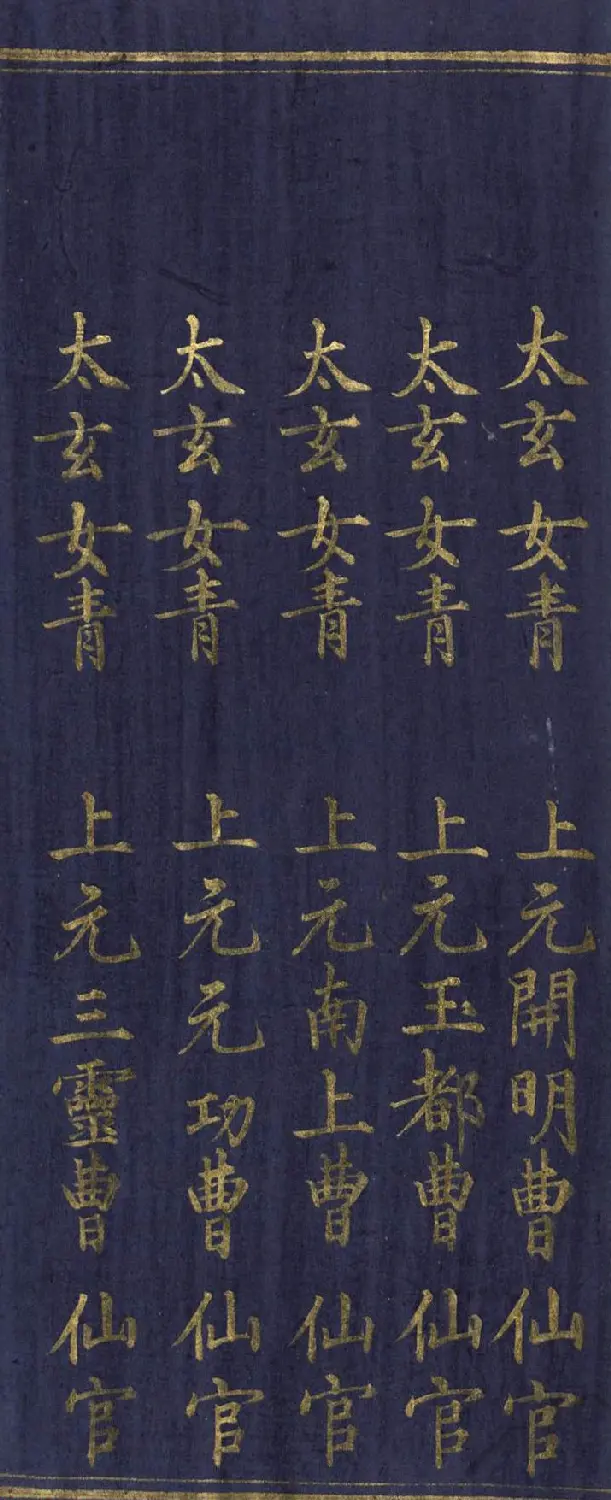 太玄女青 上元開明曹仙官
太玄女青 上元玉都曹仙官
太玄女青 上元南上曹仙官
太玄女青 上元元功曹仙官
太玄女青 上元三靈曹仙官